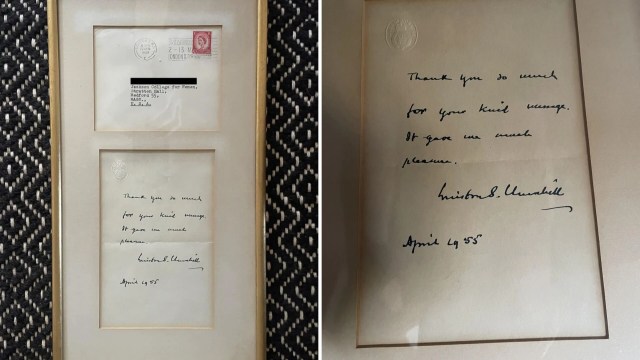 Jackson College For Women,
Stratton Hall,
Medford 55,
MASS.,
U.S.A.
Thank you so much
for your kind message.
It gave me much
pleasure.
Winston S. Churchill
April 1955
Thank you so much
for your kind message.
It gave me much
pleasure.
Winston S. Churchill
April 1955